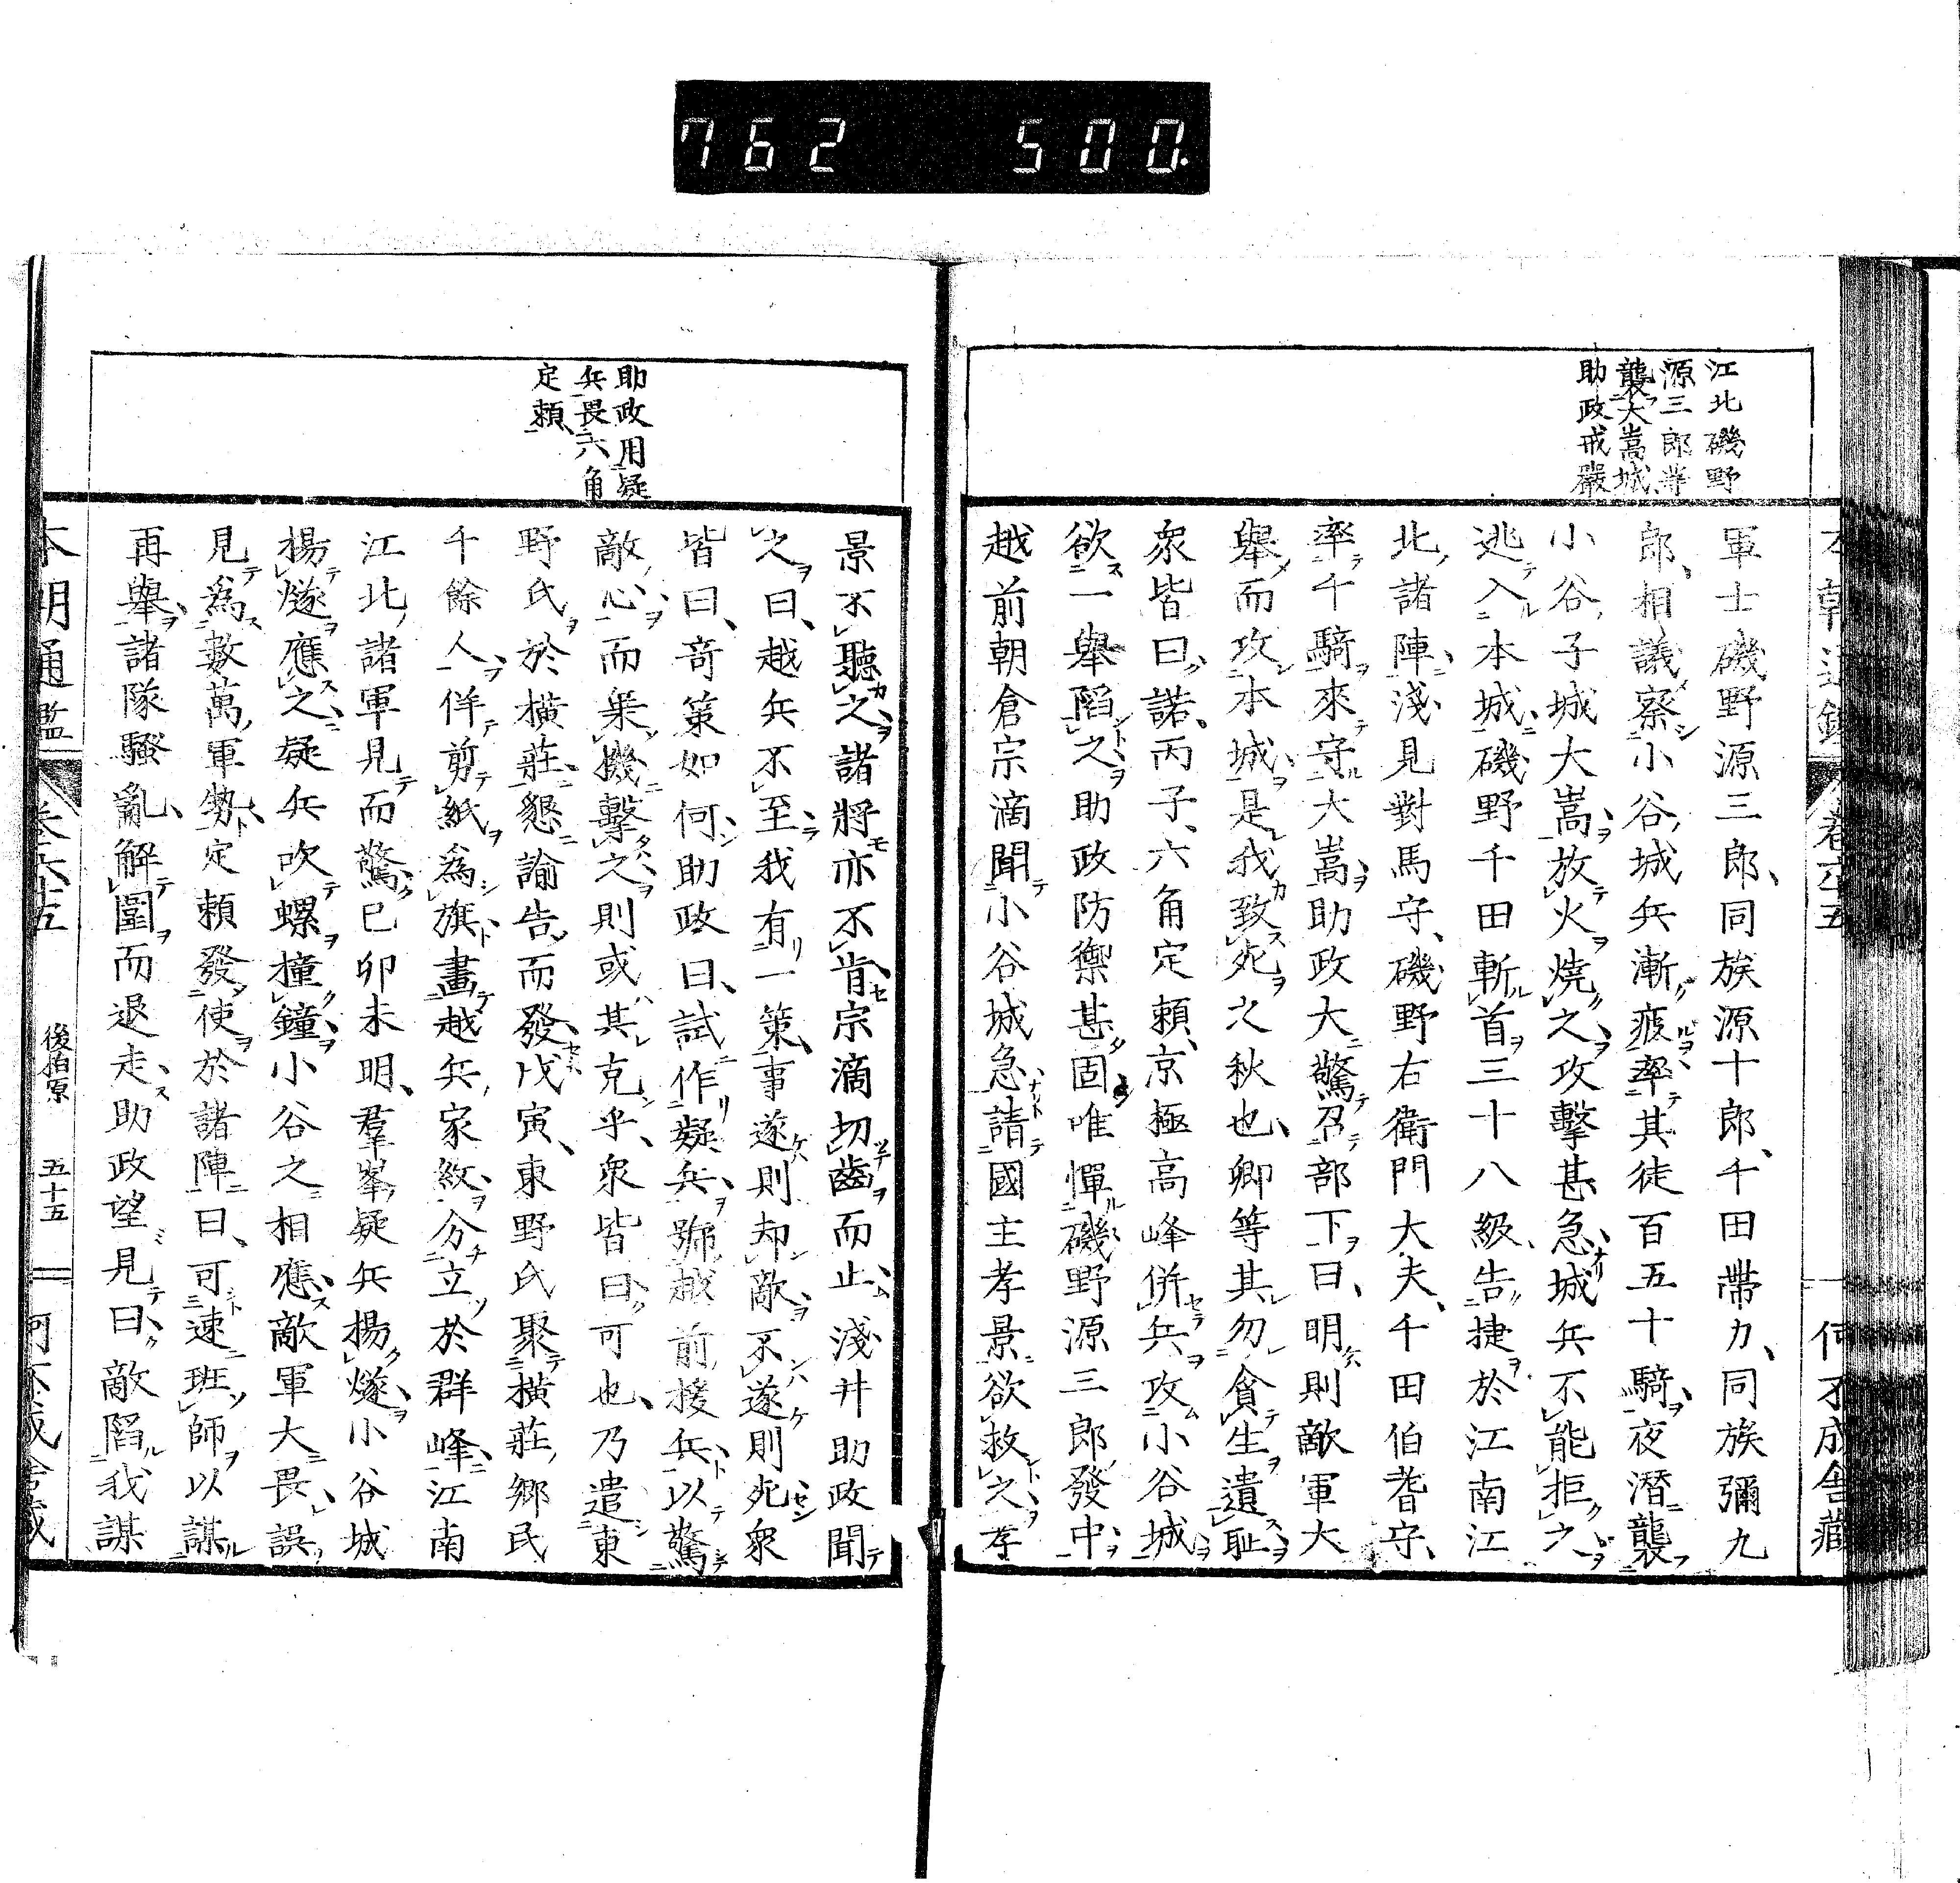 762 500.
本朝通鑑 卷六十五 何不成舍藏
江北磯野
源三郎等
襲大嵩城
助政戒嚴
軍士磯野源三郎、同族源十郎、千田帶刀、同族彌九
郎、相議察小谷城兵漸疲率其徒百五十騎夜潛襲
小谷子城大嵩放火燒之攻擊甚急城兵不能拒之
逃入本城磯野千田斬首三十八級告捷於江南江
北諸陣淺見對馬守、磯野右衛門大夫、千田伯耆守、
率千騎來守大嵩助政大驚召部下曰、明則敵軍大
舉而攻本城是我致死之秋也、卿等其勿貪生遺恥
衆皆曰諾、丙子、六角定頼、京極高峰併兵攻小谷城
欲一舉陷之助政防禦甚固唯憚磯野源三郎發中
越前朝倉宗滴聞小谷城急請國主孝景欲救之孝
助政用疑
兵畏六角
定頼
景不聽之諸將亦不肯宗滴切齒而止淺井助政聞
之曰、越兵不至我有一策事遂則却敵不遂則死衆
皆曰、奇策如何助政曰、試作疑兵號越前援兵以驚
敵心而乘機擊之則或其克乎、衆皆曰可也、乃遣東
野氏於橫莊懇諭告而發戊寅、東野氏聚橫莊鄉民
千餘人佯剪紙爲旗畫越兵家紋分立於群峰江南
江北諸軍見而驚已卯未明、羣峯疑兵揚燧小谷城
揚燧應之疑兵吹螺撞鐘小谷之相應敵軍大畏誤
見爲數萬軍勢定頼發使於諸陣曰、可速班師以謀
再舉諸隊騷亂、解圍而退走、助政望見曰、敵陷我謀
本朝通鑑 卷六十五 後柏原 五十五 何不成舍藏